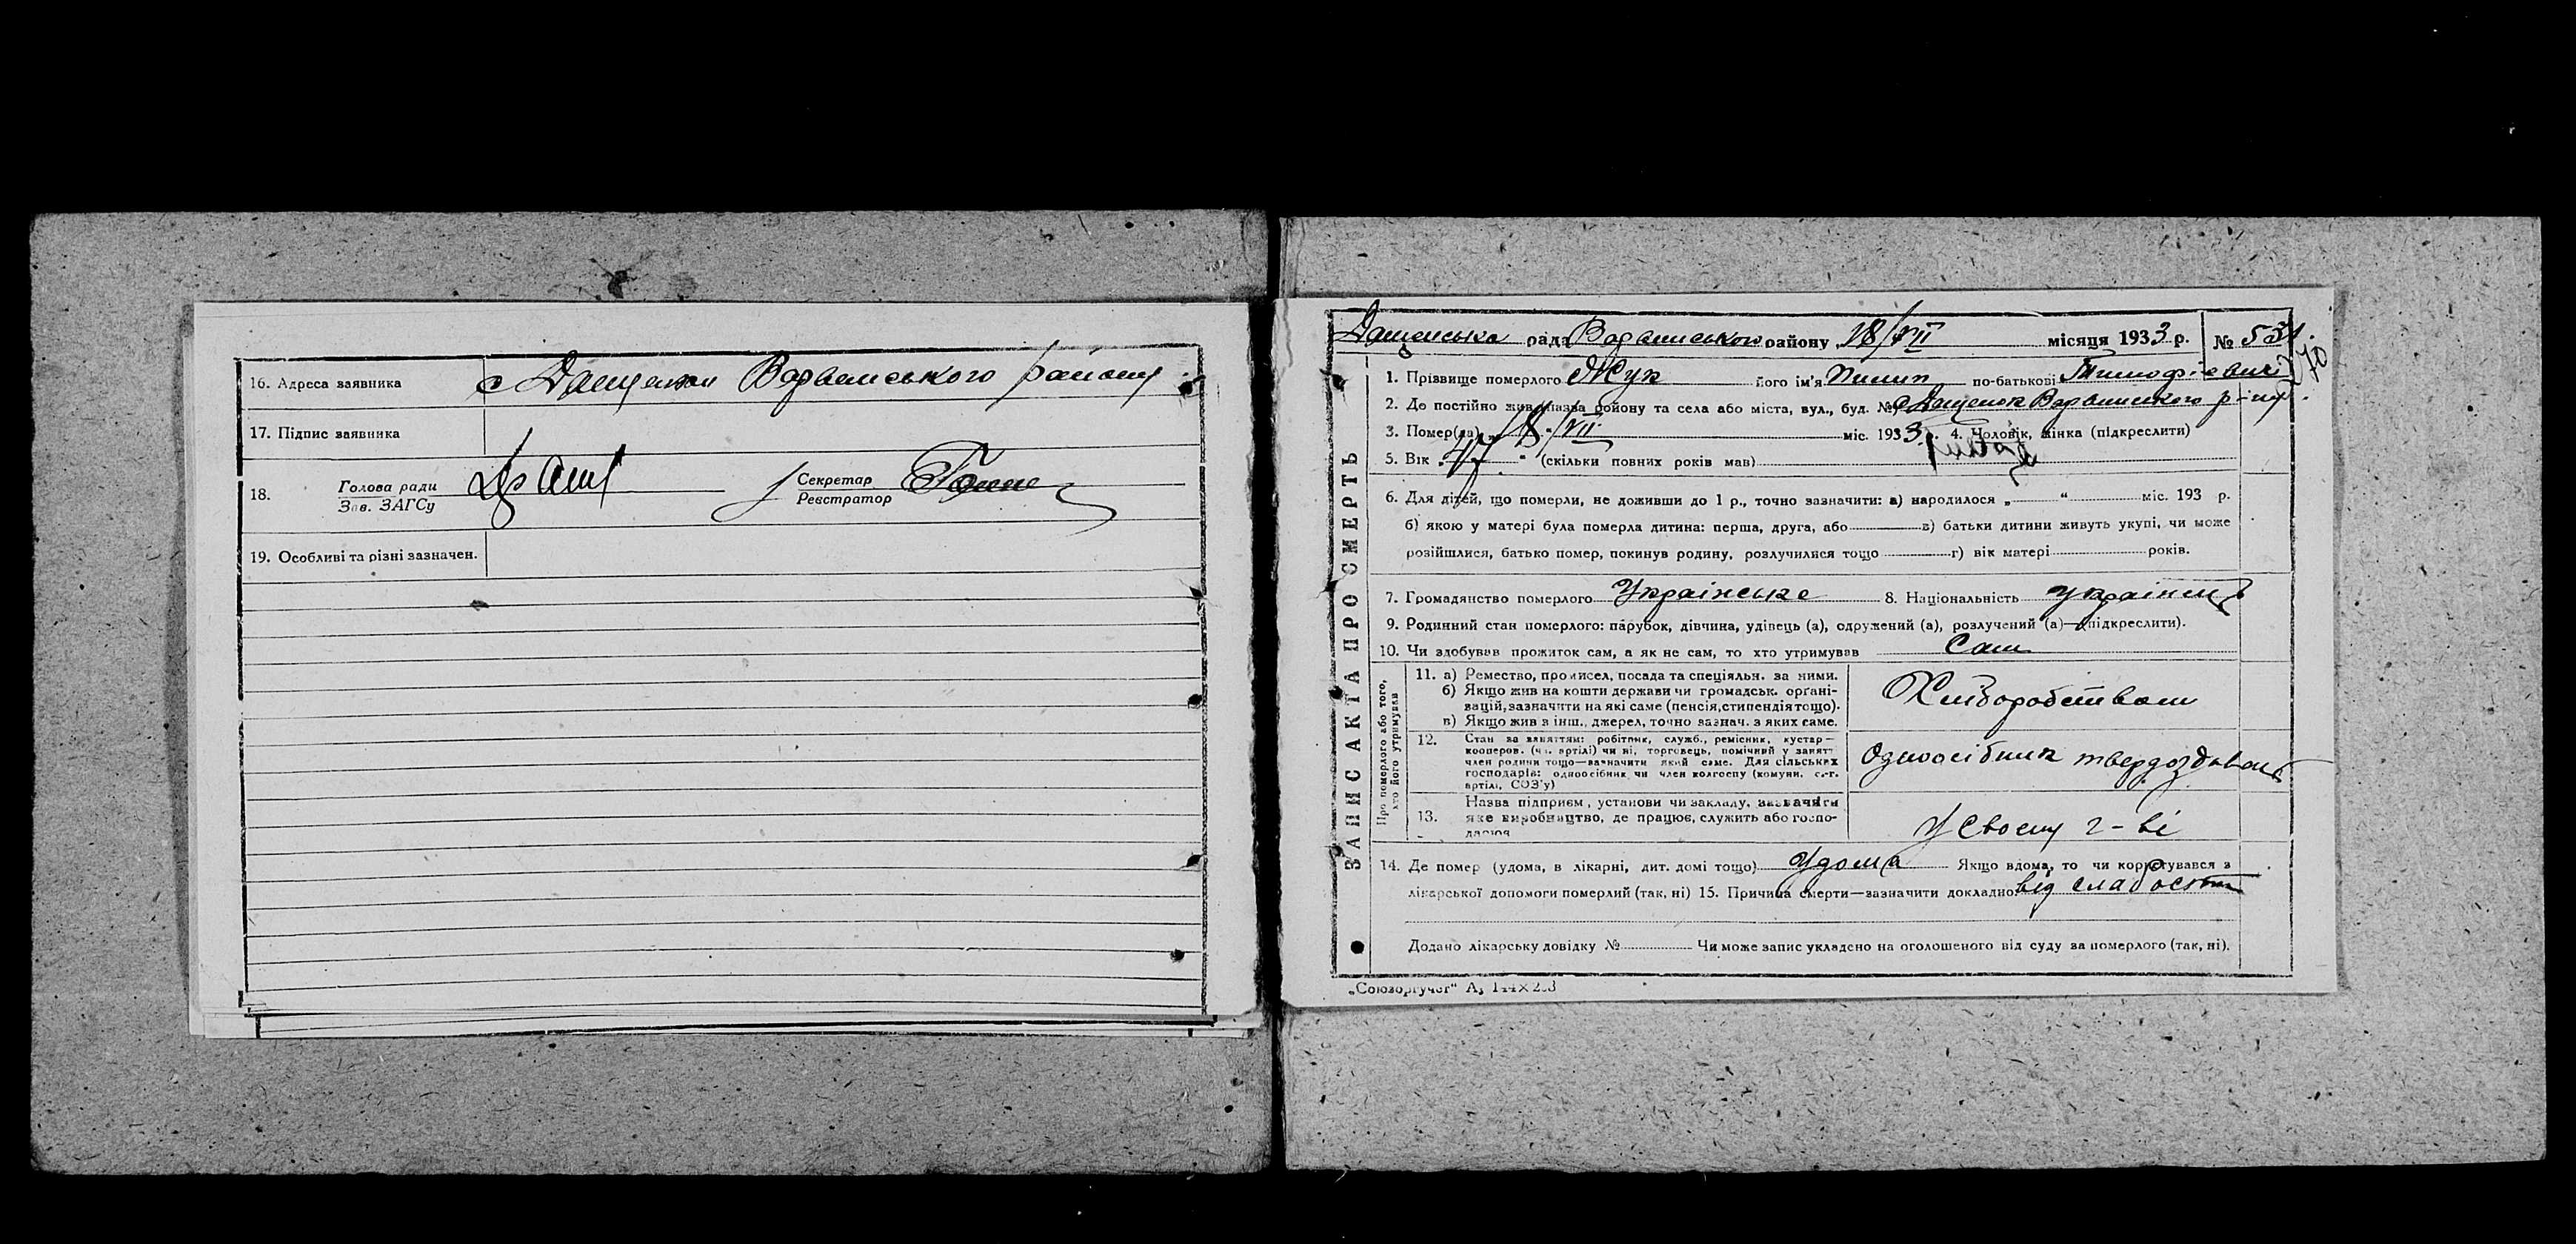 16. Адреса заявника с Дащенки Варвинського району
17. Підпис заявника
18. Голова ради Секретар
Зав. ЗАГСу Реєстратор
19. Особливі та різні зазначен.
Дащенська рада Варвинського району 18/VII місяця 1933 р. № 531
270
1. Прізвище померлого Жук його ім'я Пилип по-батькові Тимофієвич
2. Де постійно жив (назва району та села або міста, вул., буд. № с Дащенки Варвинського р-ну
3. Помер(ла) „18"/VII міс. 1933 р. 4. Чоловік, жінка (підкреслити)
5. Вік „47" (скільки повних років мав)
6. Для дітей, що померли, не доживши до 1 р., точно зазначити: а) народилося „ " міс. 193 р.
б) якою у матері була померла дитина: перша, друга, або в) батьки дитини живуть укупі, чи може
розійшлися, батько помер, покинув родину, розлучилися тощо г) вік матері років.
7. Громадянство померлого Українське 8. Національність українець
9. Родинний стан померлого: парубок, дівчина, удівець (а), одружений (а), розлучений (а)—(підкреслити).
10. Чи здобував прожиток сам, а як не сам, то хто утримував Сам
11. а) Ремество, промисел, посада та спеціяльн. за ними.
б) Якщо жив на кошти держави чи громадськ. орґані-
вацій, зазначити на які саме (пенсія, стипендія тощо).
в) Якщо жив з інш., джерел, точно зазнач. з яких саме.
Хліборобством
12. Стан за заняттям: робітник, служб., ремісник, кустар—
кооперов. (чл. артілі) чи ні, торговець, помічний у занятт
член родини тощо—зазначити який саме. Для сільських
господарів: одноосібник чи член колгоспу (комуни, с.-г.
артілі, СОЗ'у)
Одноосібник твердоздавець
13. Назва підприєм, установи чи закладу, зазначити
яке виробництво, де працює, служить або госпо-
дарює
У своєму г-ві
14. Де помер (удома, в лікарні, дит. домі тощо) Удома Якщо вдома, то чи користувався з
лікарської допомоги померлий (так, ні) 15. Причина смерти—зазначити докладно від слабости
Додано лікарську довідку № Чи може запис укладено на оголошеного від суду за померлого (так, ні).
ЗАПИС АКТА ПРО СМЕРТЬ
Про померлого або того,
хто його утримував
„Союзоргучет"